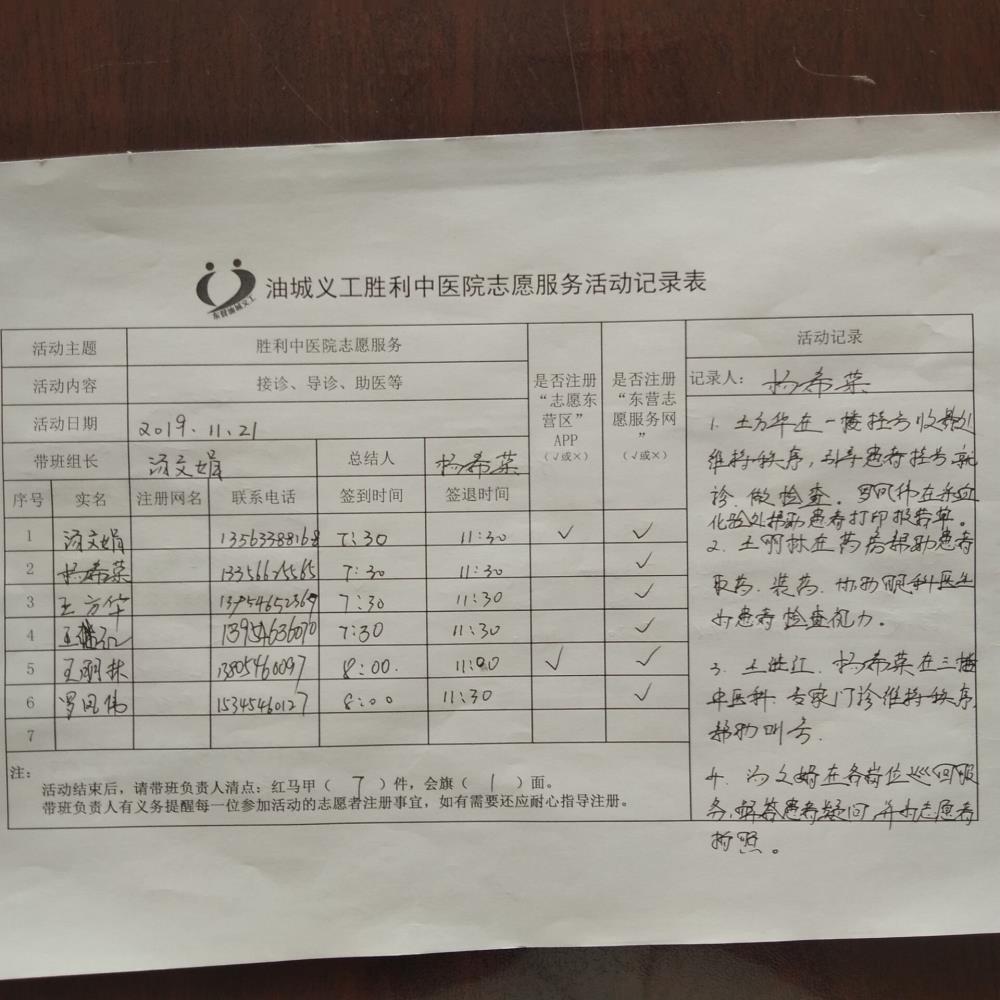 东营油城义工
油城义工胜利中医院志愿服务活动记录表
活动主题 胜利中医院志愿服务
活动内容 接诊、导诊、助医等
活动日期 2019.11.21
带班组长 汤文娟 总结人 杨希菜
是否注册“志愿东营区”APP（√或×）
是否注册“东营志愿服务网”（√或×）
序号 实名 注册网名 联系电话 签到时间 签退时间
1 汤文娟 13563388168 7:30 11:30 √ √
2 杨希菜 7:30 11:30 √
3 王方华 7:30 11:30 √
4 13954636070 7:30 11:30 √
5 13805460097 8:00. √ √
6 罗凤伟 15345460127 8:00 11:30 √
7
注：
活动结束后，请带班负责人清点：红马甲（7）件，会旗（1）面。
带班负责人有义务提醒每一位参加活动的志愿者注册事宜，如有需要还应耐心指导注册。
活动记录
记录人： 杨希菜
1. 王方华在一楼挂号收款处
维持秩序，引导患者挂号，就
诊、做检查。罗凤伟在采血
化验处帮助患者打印报告单。
2. 在药房帮助患者
取药、装药，协助眼科医生
为患者检查视力。
3. 王洪江、杨希菜在三楼
中医科、专家门诊维持秩序，
帮助叫号.
4. 汤文娟在各岗位巡回服
务，解答患者疑问，并为志愿者
拍照。